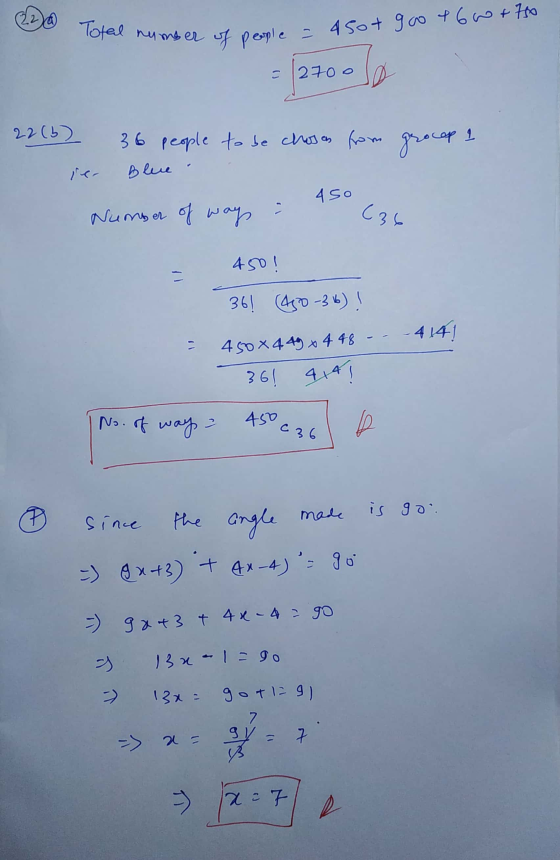 22(a) Total number of people = 450 + 900 + 600 + 750
= 2700
22(b) 36 people to be chosen from group 1
i.e. Blue.
Number of ways = 450 C 36
= 450! / 36! (450-36)!
= 450 × 449 × 448 - - - 414! / 36! 414!
No. of ways = 450 C 36
7 Since the angle made is 90°.
=> (9x+3)° + (4x-4)° = 90°
=> 9x+3 + 4x-4 = 90
=> 13x - 1 = 90
=> 13x = 90+1 = 91
=> x = 91/13 7 = 7°
=> x = 7